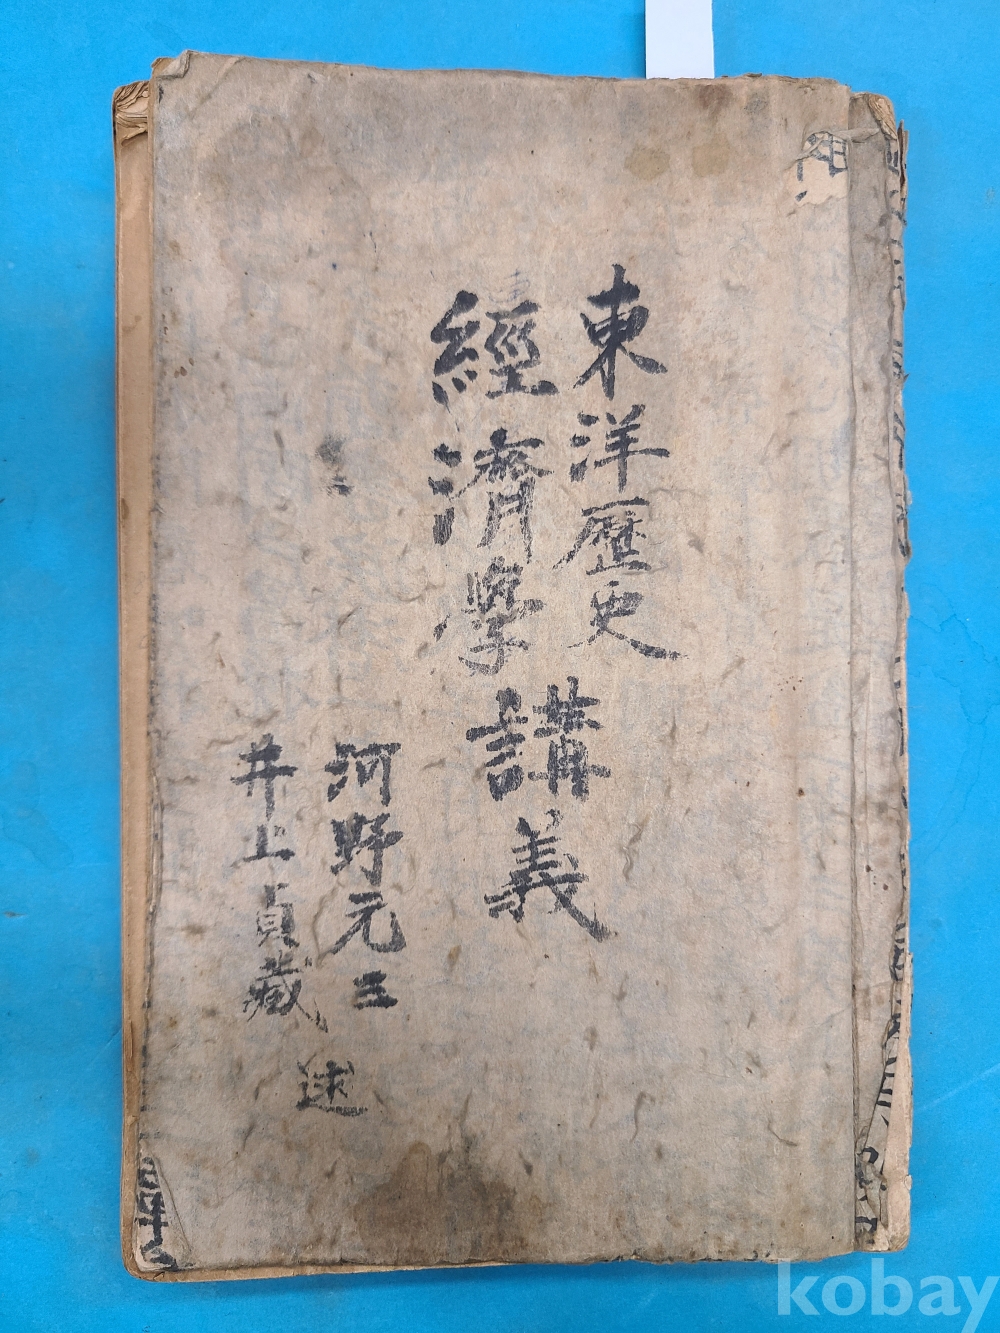 東洋歷史
經濟學
講義
河野元三
井上貞藏
述
kobay